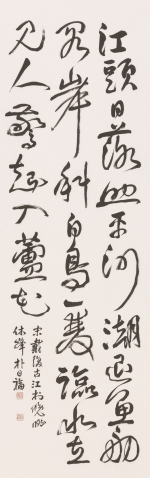 江頭日落照平沙潮退魚船
閣岸斜白鳥一雙臨水立
見人驚起入蘆花
宋戴復古江村晚眺
休峰朴日福